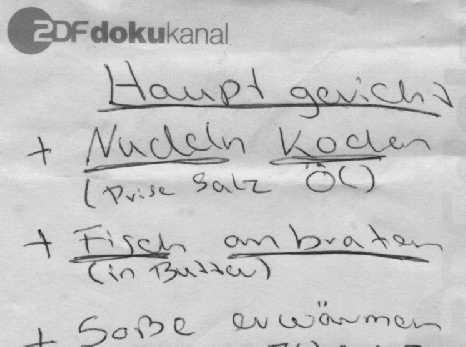 ZDFdokukanal
Hauptgericht
+ Nudeln Kochen
(Prise Salz Öl)
+ Fisch anbraten
(in Butter)
+ Soße erwärmen